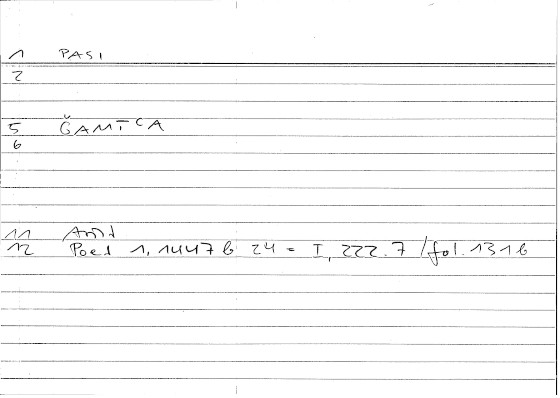 1 PASI
2
5 ǦAMĪᶜA
6
11 Arist
12 Poet 1, 1447 b 24 = I, 222.7 /fol. 131b